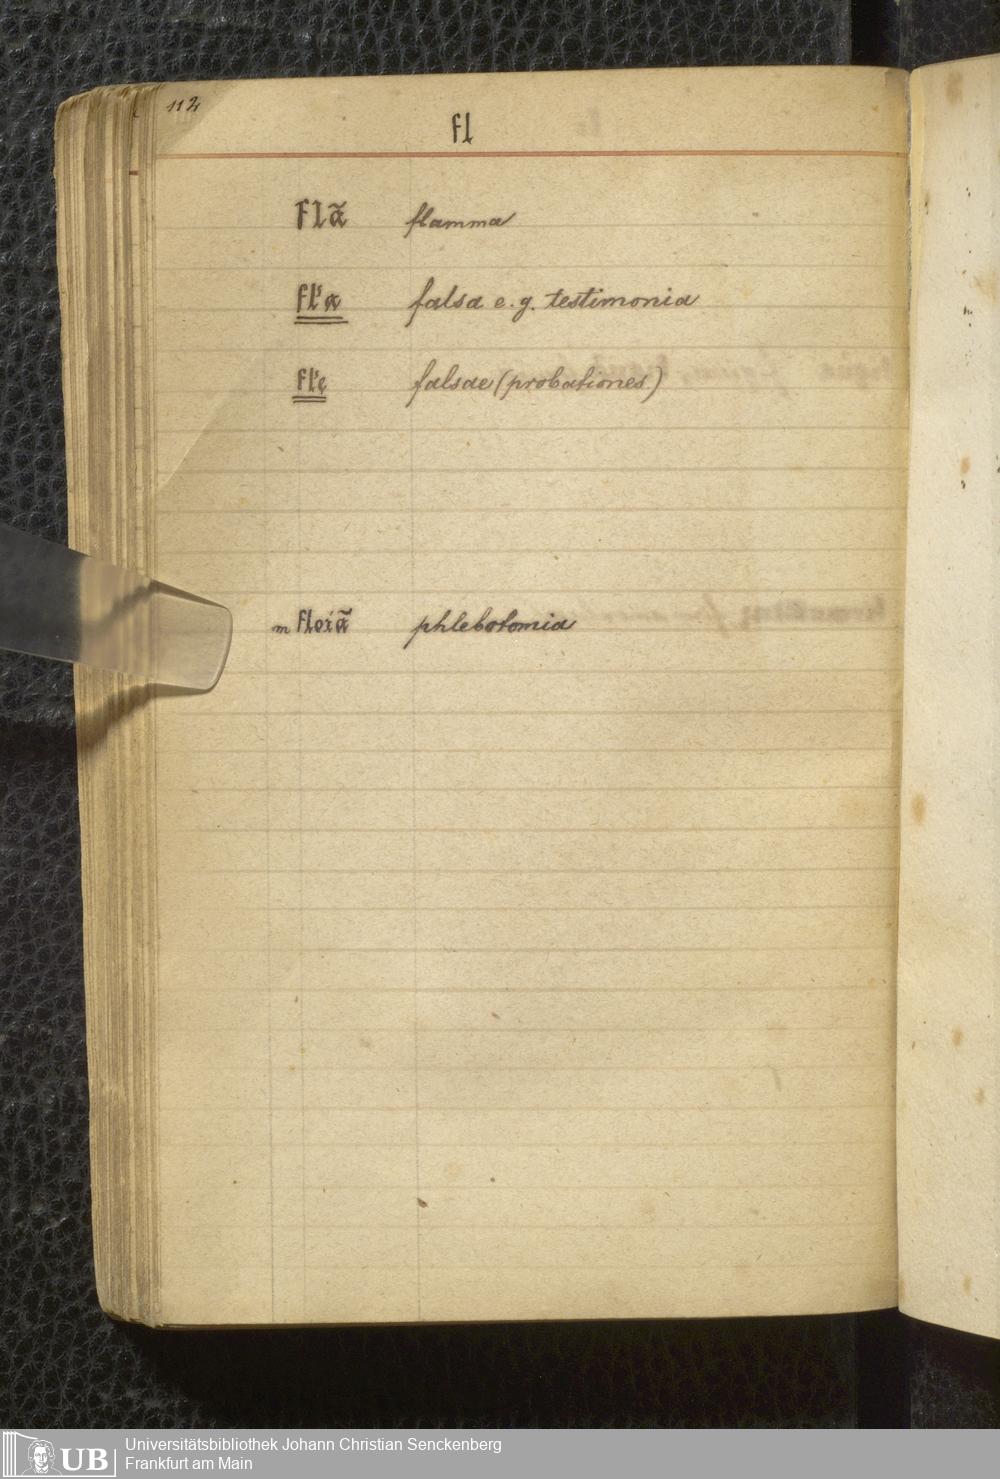 112
fl
flã
flamma
fl'a
falsa e. g. testimonia
fl'ę
falsae (probationes.)
m floiã
phlebotomia
UB
Universitätsbibliothek Johann Christian Senckenberg
Frankfurt am Main